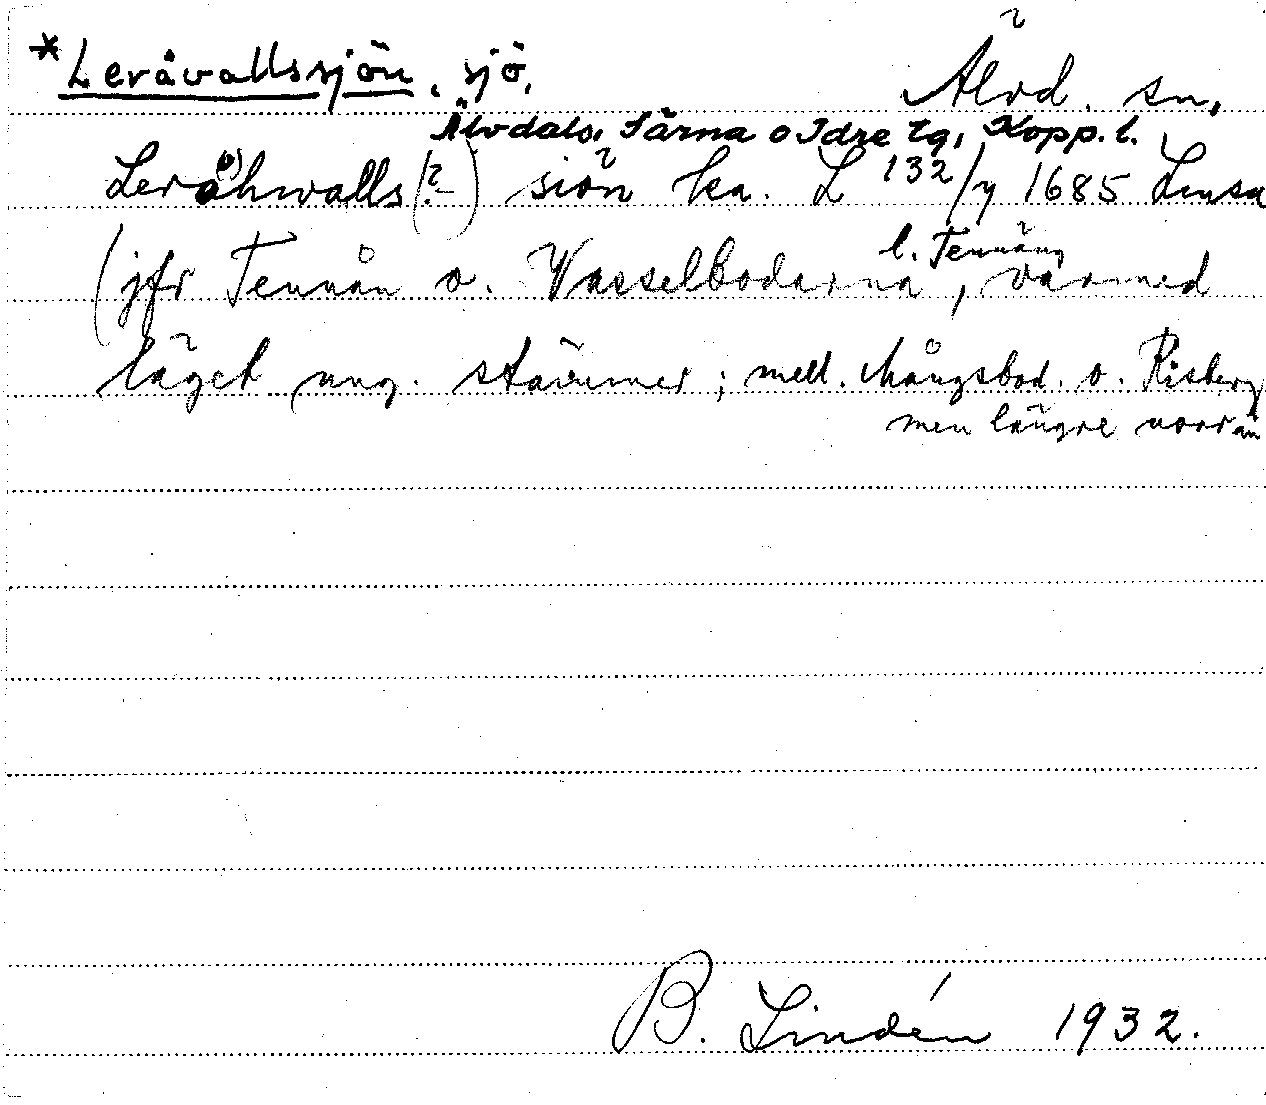 *Leråvallssjön, sjö, Älvd. sn,
Älvdals, Särna o Idre tg, Kopp. l.
Leråhwalls (?) siön ka. L 132/y 1685
(jfr Tennån o. Wasselbodarna l. Tennäng, varmed
läget ung. stämmer; mell. Mångsbod. o. Risberg
men längre norrån
B. Lindén 1932.